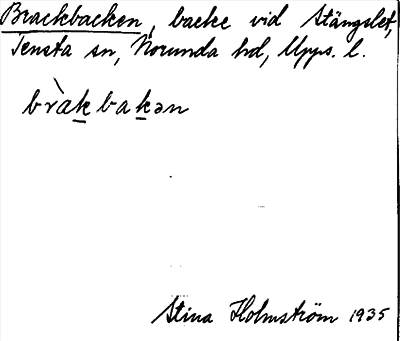 Brackbacken, backe vid Stängslet,
Tensta sn, Norunda hd, Upps. l.
bràk̲bak̲ən
Stina Holmström 1935